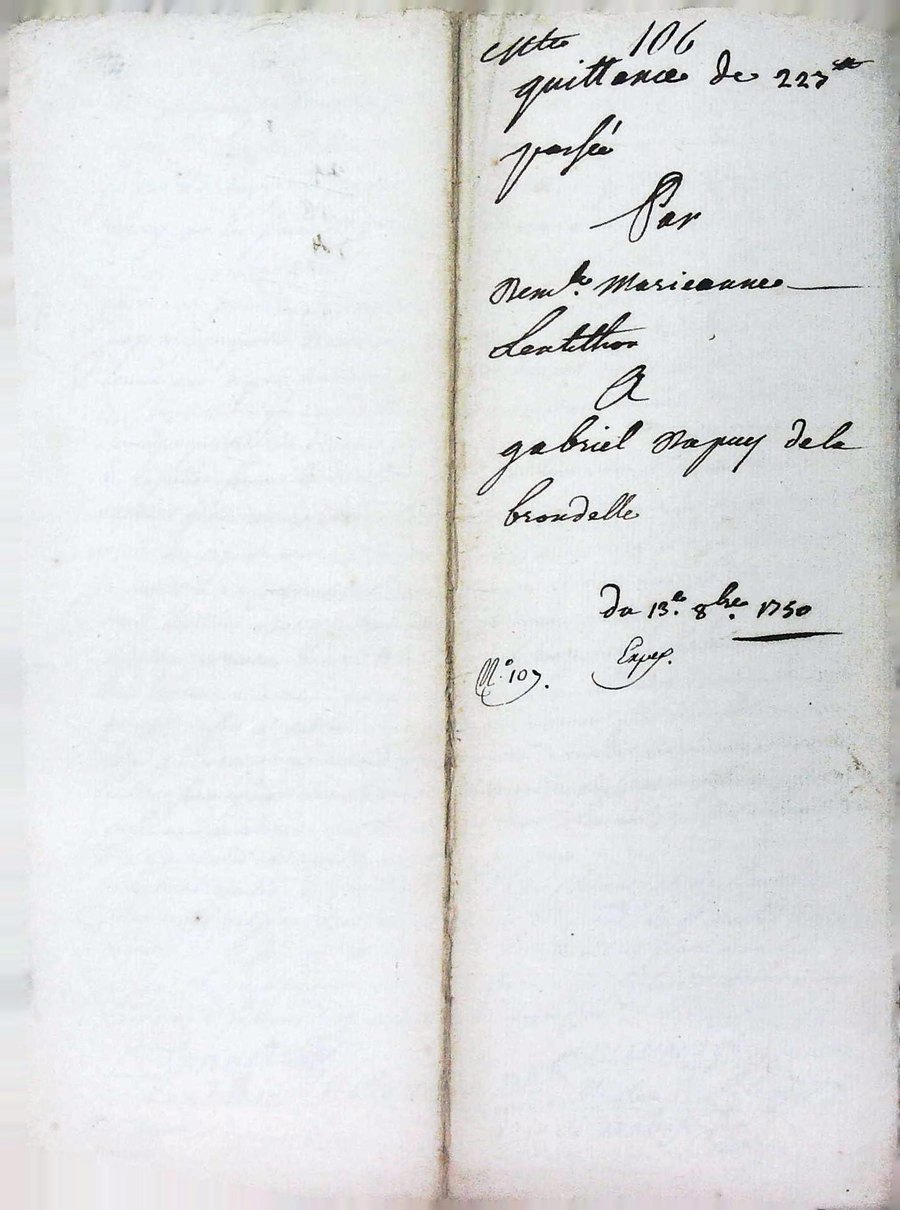 106
quittance de 227ᵗᵗ
passée
Par
Demᵉˡˡᵉ Marieanne
Lentilhon
A
gabriel Dupuy dela
brondelle
du 13ᵉ. 8bre. 1750
Expéᵉ.
N.º 107.